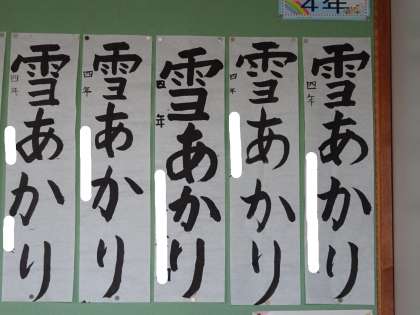 4年
雪あかり
四年
雪あかり
四年
雪あかり
四年
雪あかり
四年
雪あかり
四年